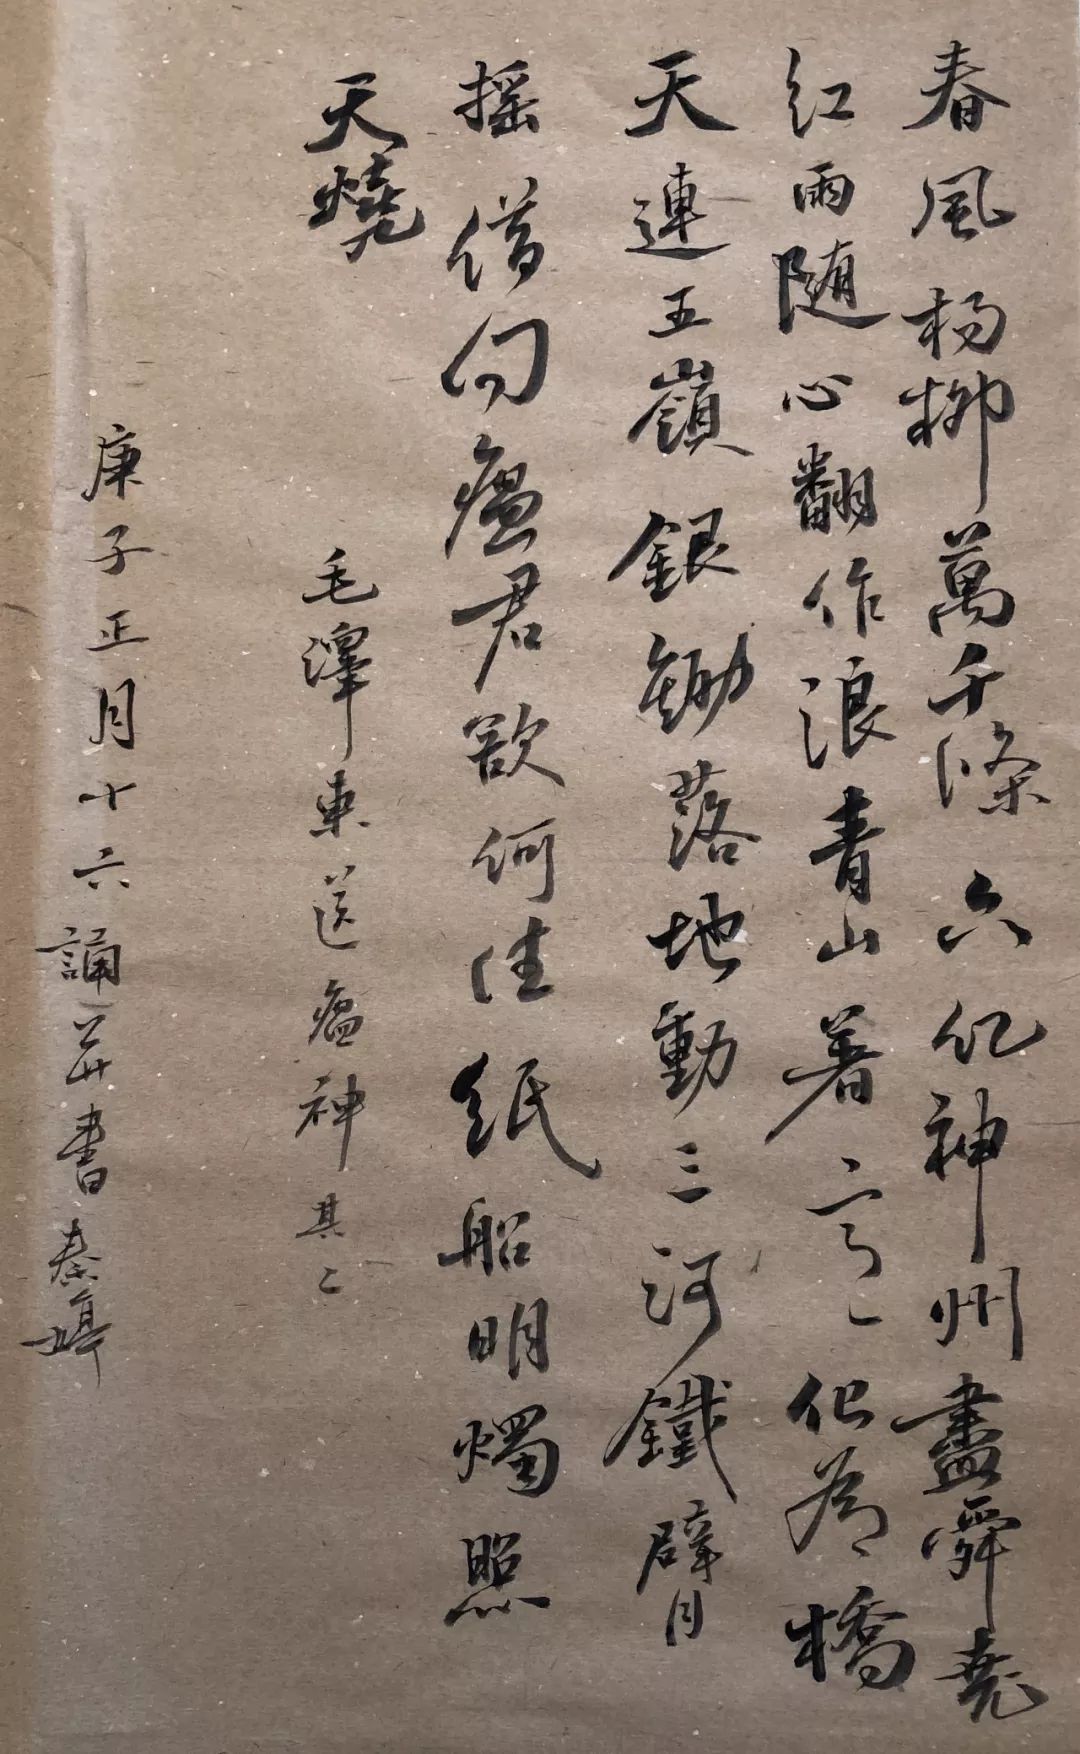 春風杨柳萬千條六亿神州盡舜堯
红雨随心翻作浪青山着意化為橋
天連五嶺銀鋤落地動三河鐵臂
摇借问瘟君欲何往纸船明燭照
天燒
毛澤東送瘟神其二
庚子正月十六誦并書秦